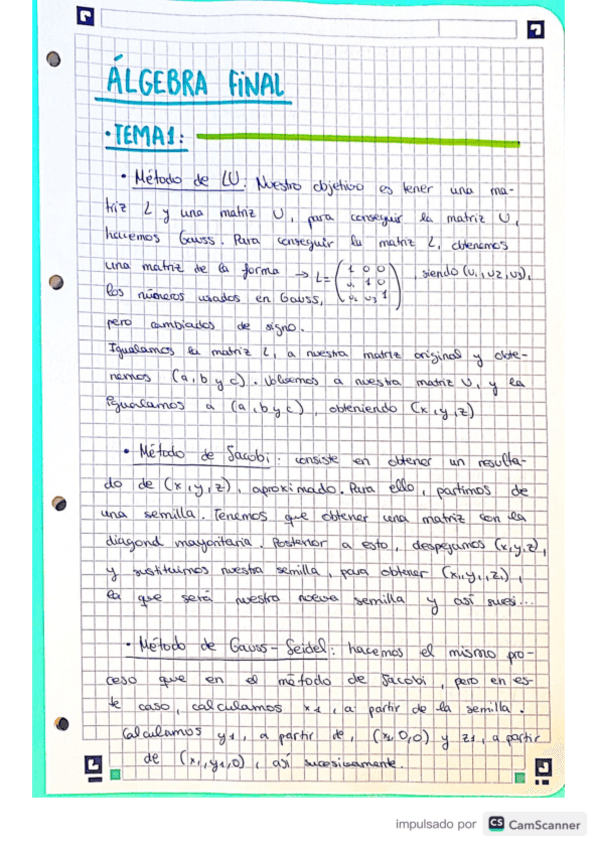 ÁLGEBRA FINAL
• TEMA1:
• Método de LU: Nuestro objetivo es tener una ma-
triz L y una matriz U, para conseguir la matriz U,
hacemos Gauss. Para conseguir la matriz L, obtenemos
una matriz de la forma → L= (1 0 0 , siendo (u1, u2, u3),
u1 1 0
los números usados en Gauss, u2 u3 1)
pero cambiados de signo.
Igualamos la matriz L, a nuestra matriz original y obte-
nemos (a, b y c). Volvemos a nuestra matriz U, y la
igualamos a (a, b y c), obteniendo (x, y, z)
• Método de Jacobi: consiste en obtener un resulta-
do de (x, y, z), aproximado. Para ello, partimos de
una semilla. Tenemos que obtener una matriz con la
diagonal mayoritaria. Posterior a esto, despejamos (x, y, z),
y sustituimos nuestra semilla, para obtener (x1, y1, z1),
la que será nuestra nueva semilla y así sucesi...
• Método de Gauss-Seidel: hacemos el mismo pro-
ceso que en el método de Jacobi, pero en es-
te caso, calculamos x1, a partir de la semilla.
Calculamos y1, a partir de, (x1,0,0) y z1, a partir
de (x1, y1, 0), así sucesivamente.
impulsado por CS CamScanner